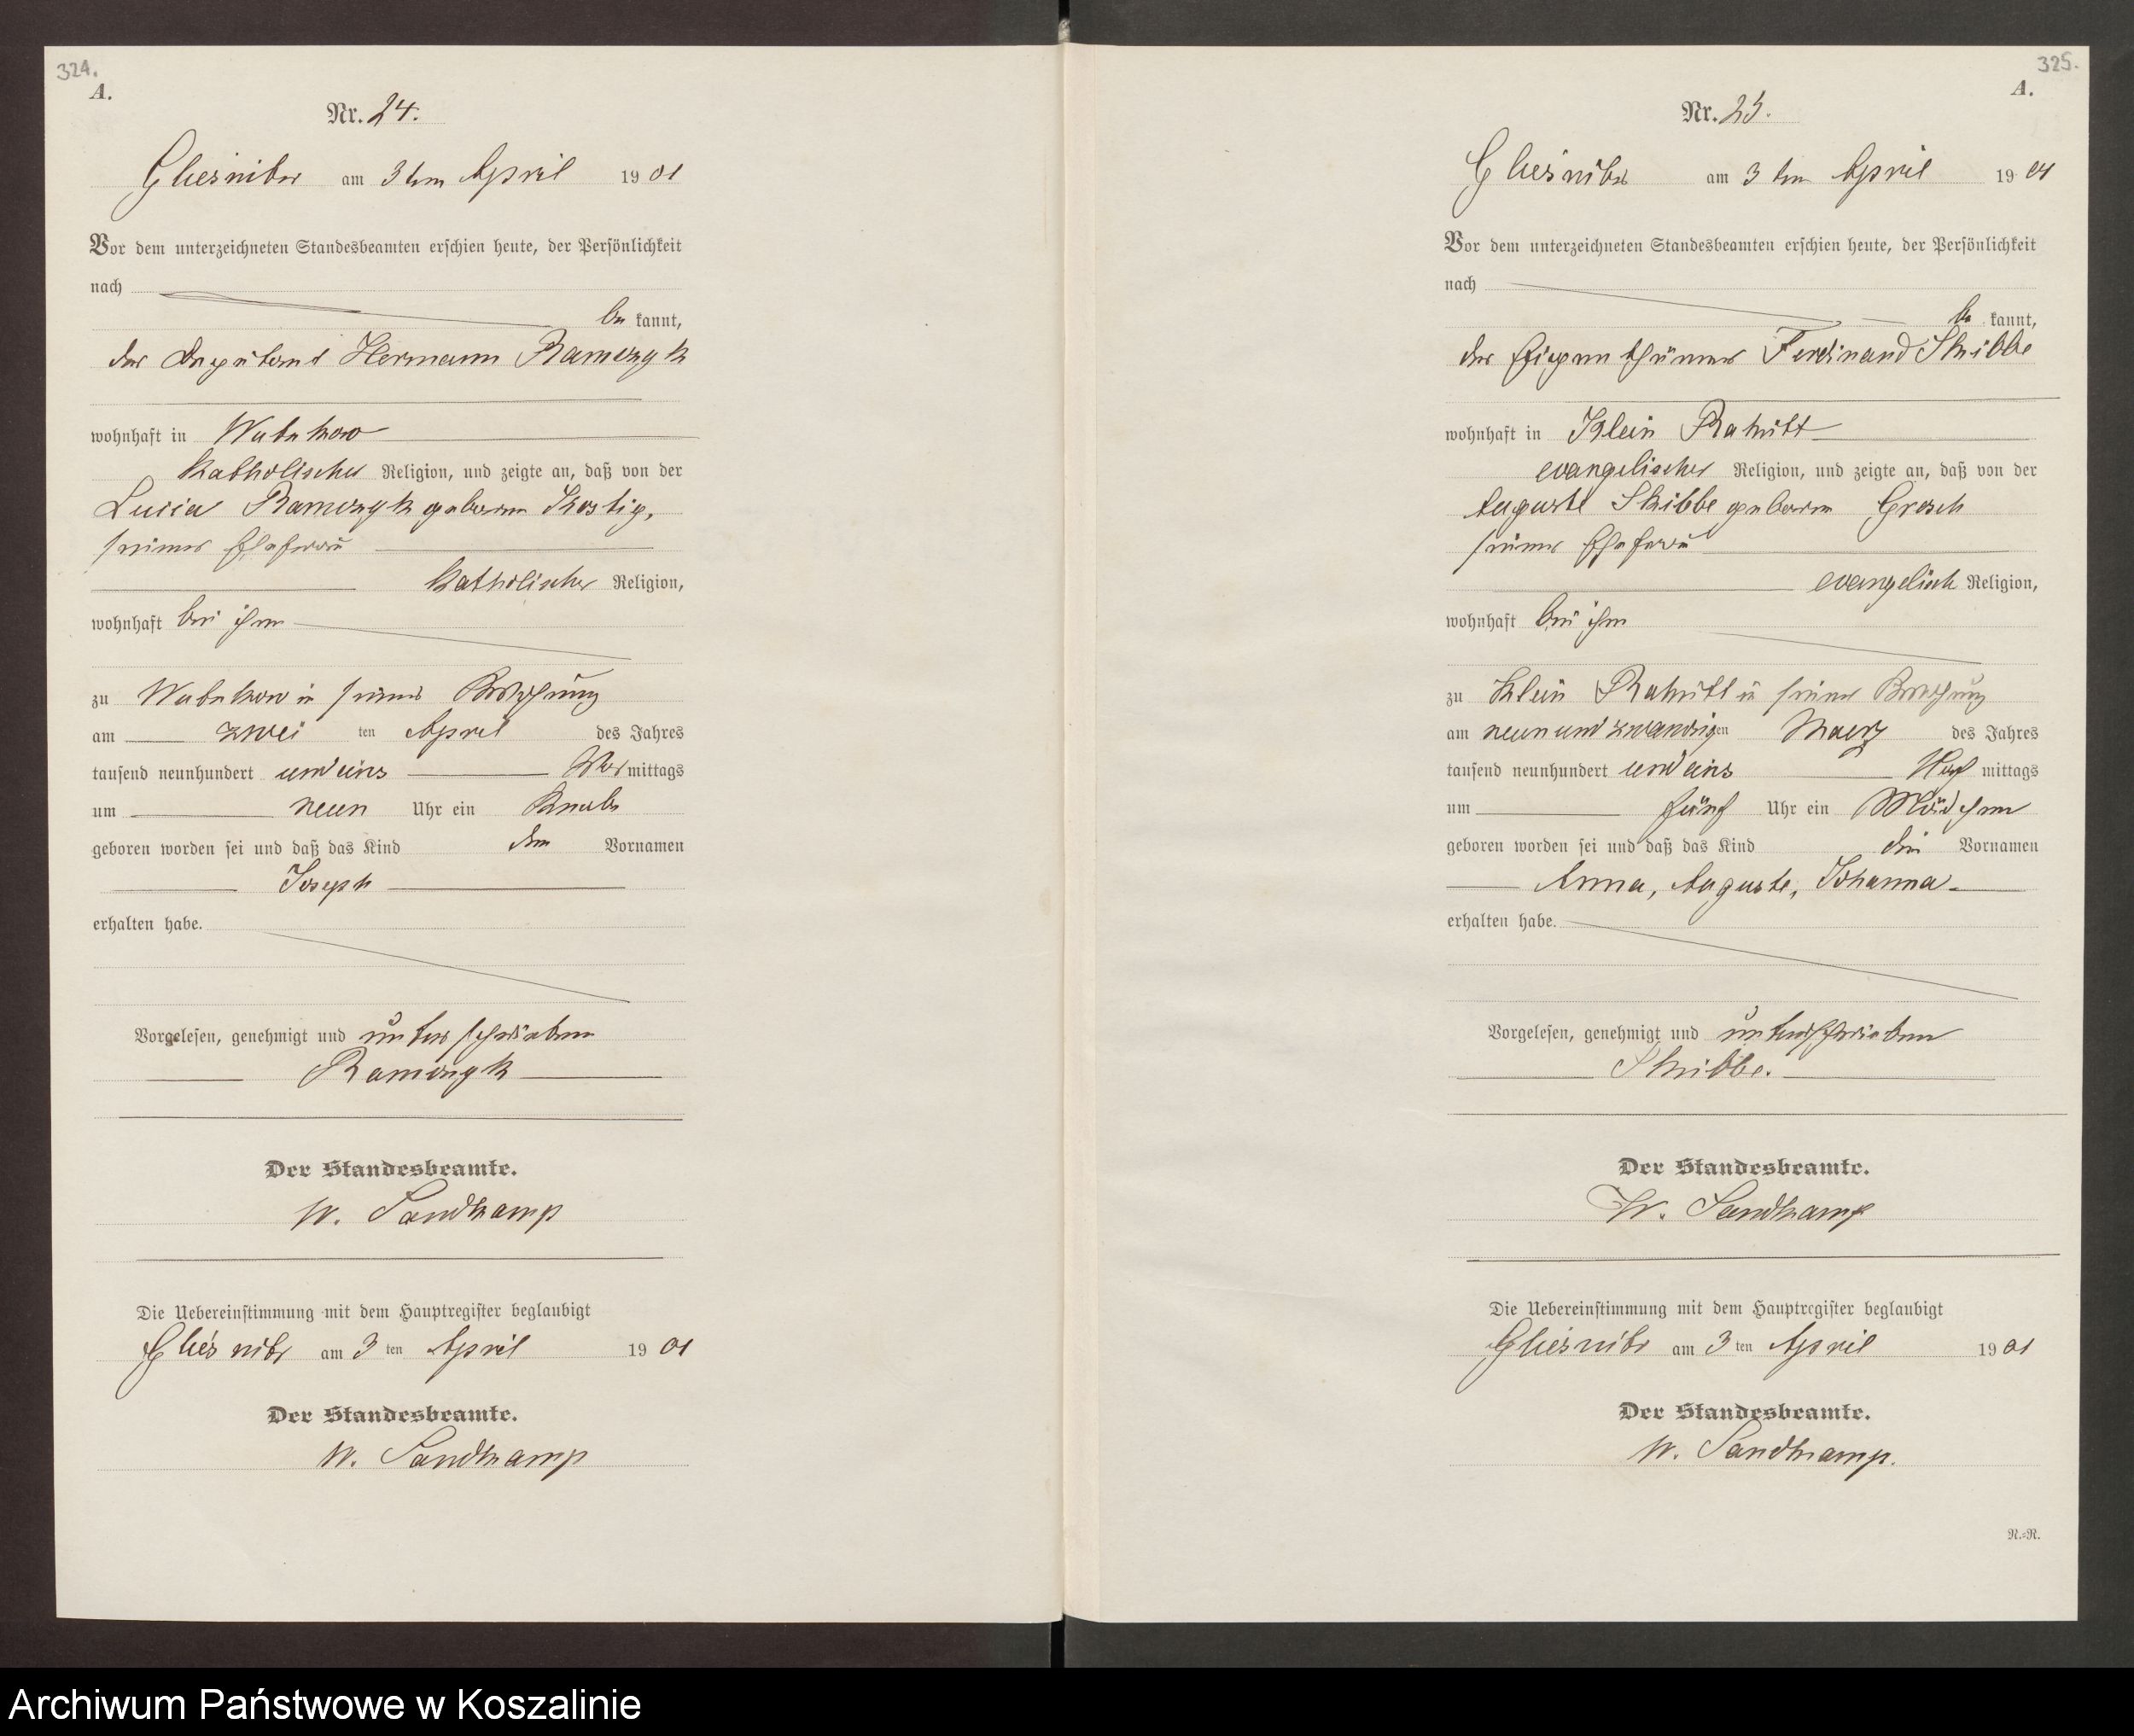 324.
A.
Nr. 24.
Gliesnitz am 3ten April 1901
Vor dem unterzeichneten Standesbeamten erschien heute, der Persönlichkeit
nach
bekannt,
der Deputant Hermann Ramczyk
wohnhaft in Wutzkow
katholischer Religion, und zeigte an, daß von der
Lucia Ramczyk geboren Kostig,
seiner Ehefrau
katholischer Religion,
wohnhaft bei ihm
zu Wutzkow in seiner Wohnung
am zwei ten April des Jahres
tausend neunhundert und eins Vormittags
um neun Uhr ein Knabe
geboren worden sei und daß das Kind den Vornamen
Joseph
erhalten habe.
Vorgelesen, genehmigt und unterschrieben
Ramczyk
Der Standesbeamte.
W. Sandkamp
Die Uebereinstimmung mit dem Hauptregister beglaubigt
Gliesnitz am 3ten April 1901
Der Standesbeamte.
W. Sandkamp
325.
A.
Nr. 25.
Gliesnitz am 3ten April 1901
Vor dem unterzeichneten Standesbeamten erschien heute, der Persönlichkeit
nach
bekannt,
der Eigenthümer Ferdinand Skibbe
wohnhaft in Klein Rakitt
evangelischer Religion, und zeigte an, daß von der
Auguste Skibbe geboren Grosch
seiner Ehefrau
evangelisch Religion,
wohnhaft bei ihm
zu Klein Rakitt in seiner Wohnung
am neun und zwanzigen Maerz des Jahres
tausend neunhundert und eins Nachmittags
um fünf Uhr ein Mädchen
geboren worden sei und daß das Kind die Vornamen
Anna, Auguste, Johanna
erhalten habe.
Vorgelesen, genehmigt und unterschrieben
Skibbe.
Der Standesbeamte.
W. Sandkamp
Die Uebereinstimmung mit dem Hauptregister beglaubigt
Gliesnitz am 3ten April 1901
Der Standesbeamte.
W. Sandkamp.
N.=R.
Archiwum Państwowe w Koszalinie